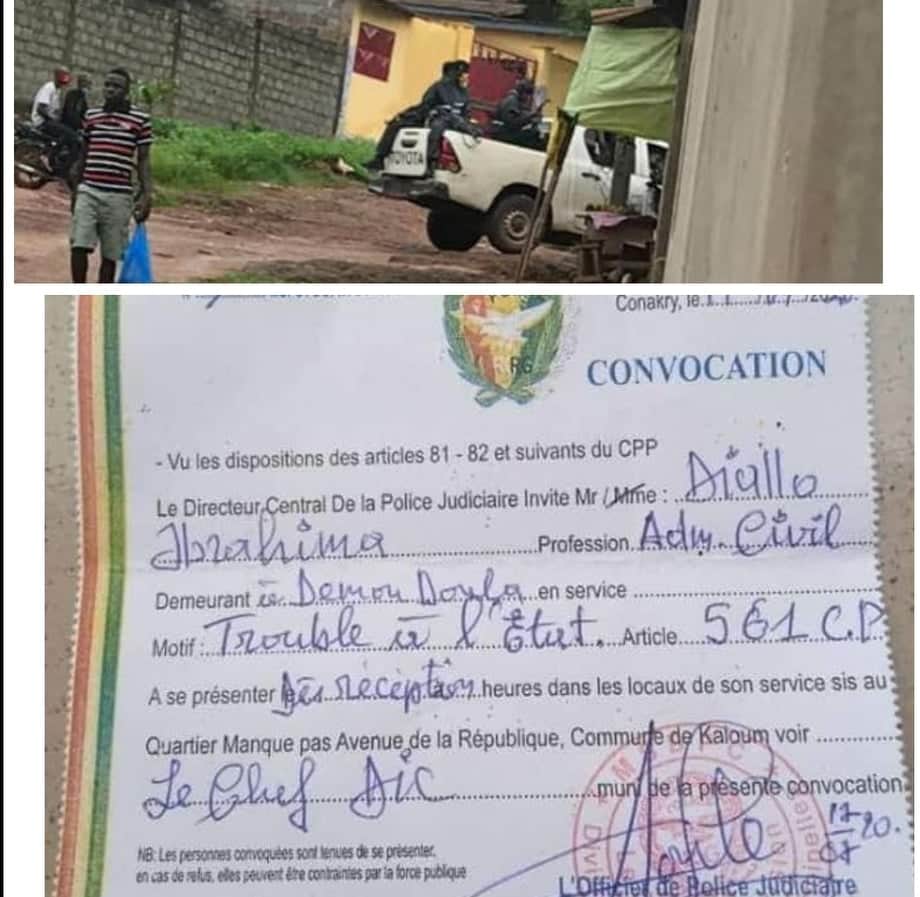 TOYOTA
Conakry, le
RG
CONVOCATION
- Vu les dispositions des articles 81 - 82 et suivants du CPP
Le Directeur Central De la Police Judiciaire Invite Mr / Mme : Diallo
Ibrahima Profession Adm. Civil
Demeurant à Demou Doula en service
Motif : Trouble à l'Etat. Article 561 C.P
A se présenter Dès réception heures dans les locaux de son service sis au
Quartier Manque pas Avenue de la République, Commune de Kaloum voir
Le Chef DIC muni de la présente convocation
17
20.
07
NB: Les personnes convoquées sont tenues de se présenter,
en cas de refus, elles peuvent être contraintes par la force publique
L'Officier de Police Judiciaire